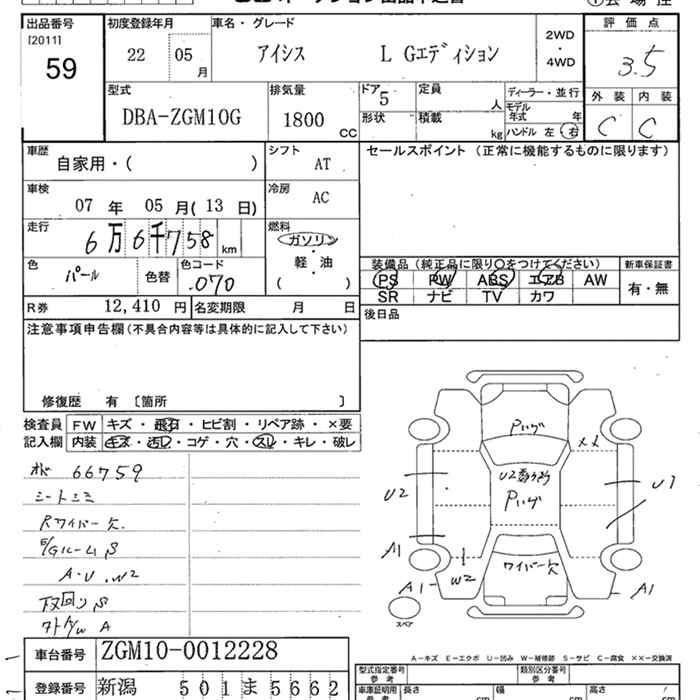 出品番号 初度登録年月 車名・グレード 評価点
[2011]
59 22 05 月 アイシス L Gエディション 2WD・4WD 3.5
型式 排気量 ドア 5 定員 人 ディーラー・並行 外装 内装
DBA-ZGM10G 1800 CC 形状 積載 kg モデル年式 年 ハンドル 左 右 C C
車歴 シフト セールスポイント (正常に機能するものに限ります)
自家用・( ) AT
車検 冷房
07 年 05 月 (13 日) AC
走行 燃料
6万6千758 km ガソリン・軽・油
( )
色 パール 色替 色コード 070
装備品 (純正品に限り〇をつけてください) 新車保証書
PS PW ABS エアB AW 有・無
SR ナビ TV カワ
R券 12,410 円 名変期限 月 日
後日品
注意事項申告欄 (不具合内容等は具体的に記入して下さい)
修復歴 有 〔箇所 〕
検査員 FW キズ・飛石・ヒビ割・リペア跡・×要
記入欄 内装 キズ・汚レ・コゲ・穴・スレ・キレ・破レ
66759
シートシミ
Rワイパー欠
Gルーム S
A・U.W2
下回り S
A
U2
A1
W2
A1
U1
A1
ワイパー欠
スペア
A-キズ E-エクボ U-凹み W-補修跡 S-サビ C-腐食 ××-交換済
車台番号 ZGM10-0012228
型式指定番号 参考 類別区分番号 参考
登録番号 新潟 501 ま 5662
車庫証明用 参考 長さ cm 幅 cm 高さ cm